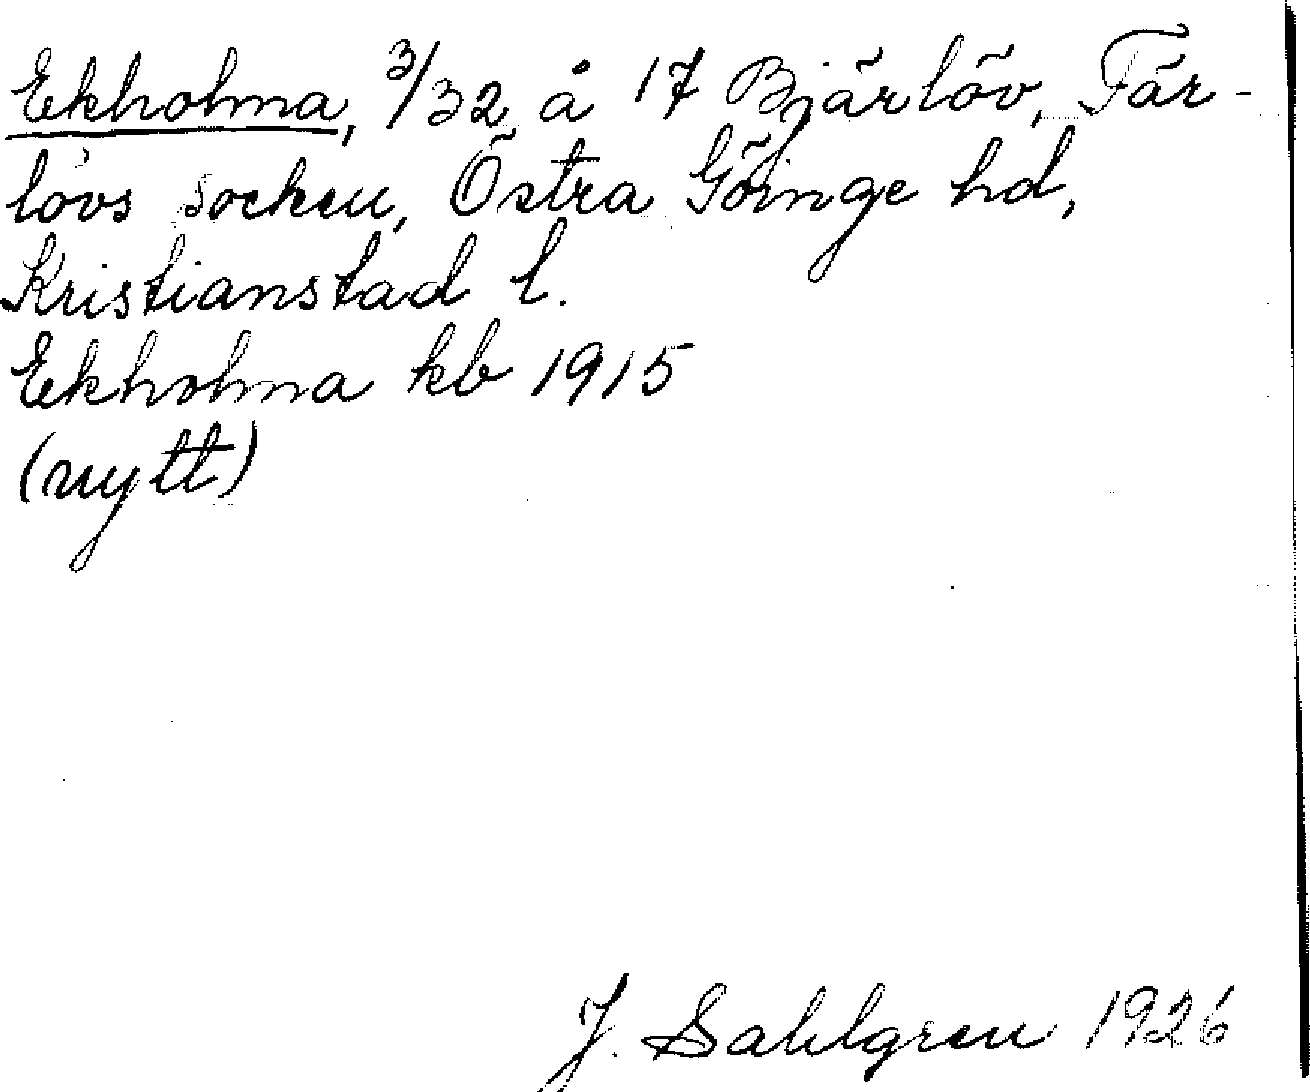 Ekholma, 3/32 å 17 Bjärlöv, Fär-
lövs socken, Östra Göinge hd,
Kristianstad l.
Ekholma kb 1915
(nytt)
J. Sahlgren 1926